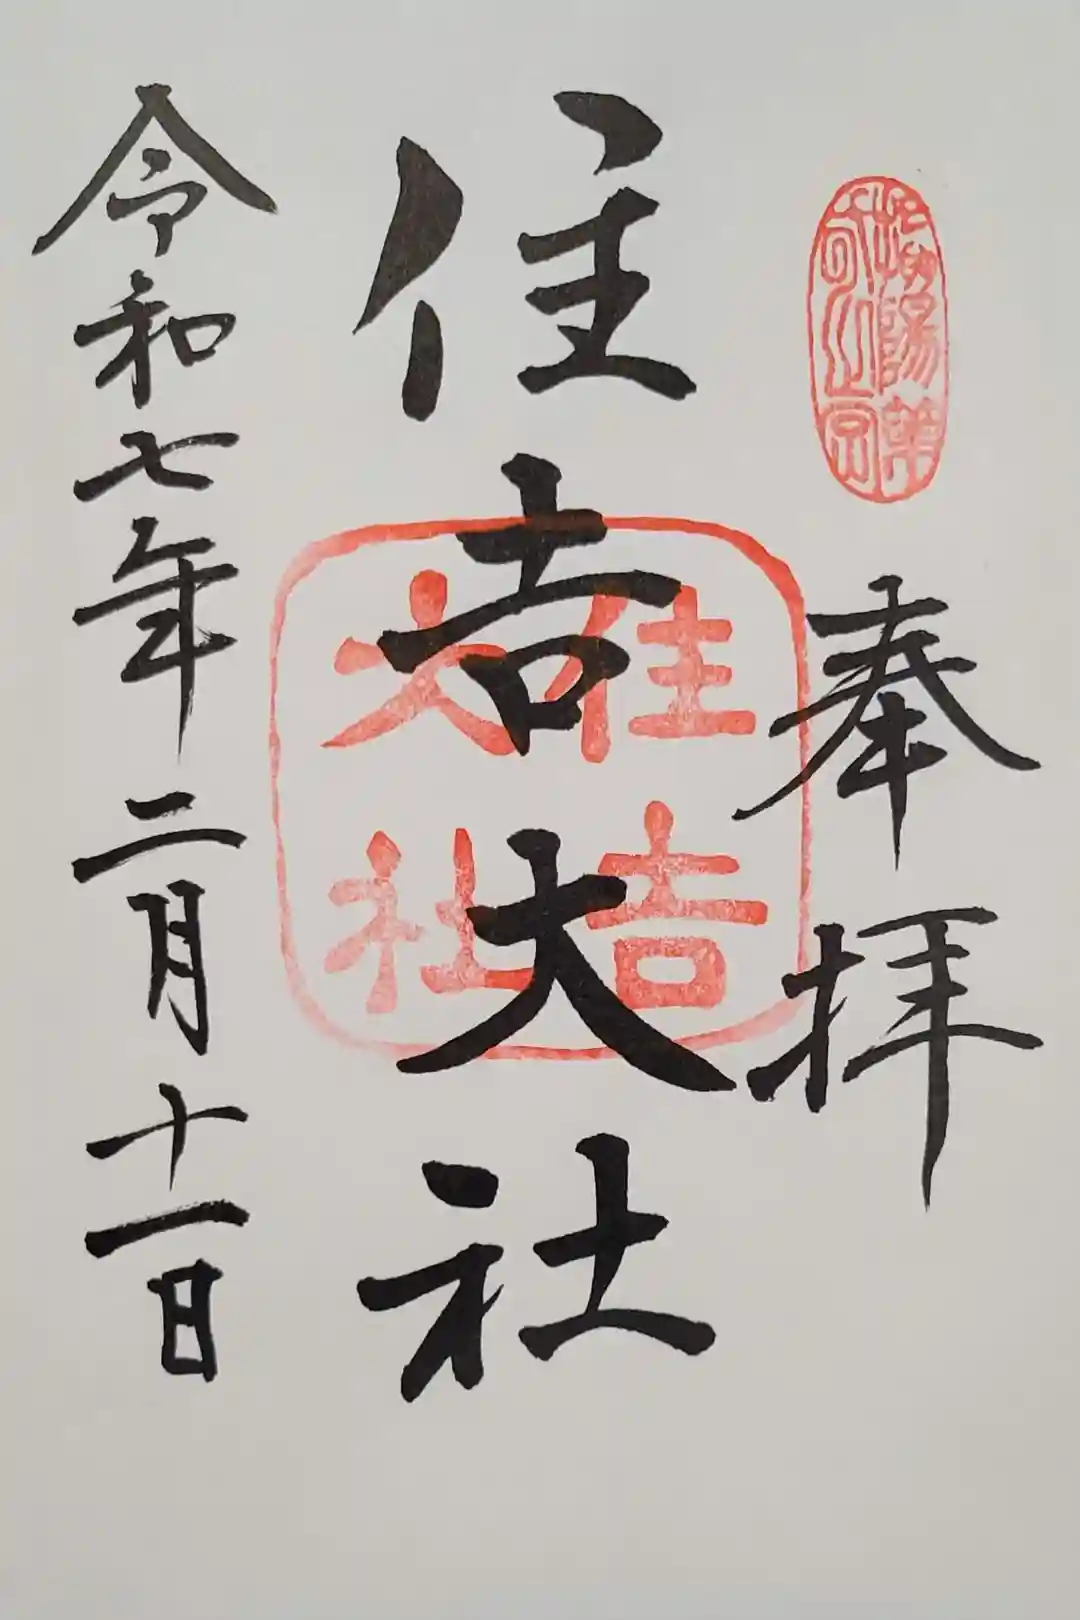 奉拝
住吉大社
住吉大社
令和七年二月十一日